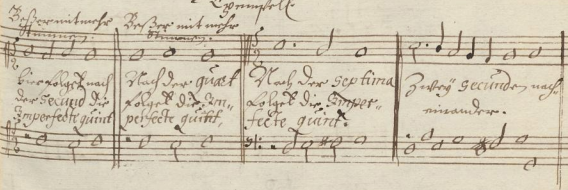 Exempel
Beßer mit mehr
Stimmen.
Beßer mit mehr
Stimmen.
hier folget nach
der Secund die
Imperfecte quint
Nach der quart
folget die Im-
perfecte quint,
Nach der Septima
folget die Imper-
fecte quint.
Zwey Secunden nach
einander.